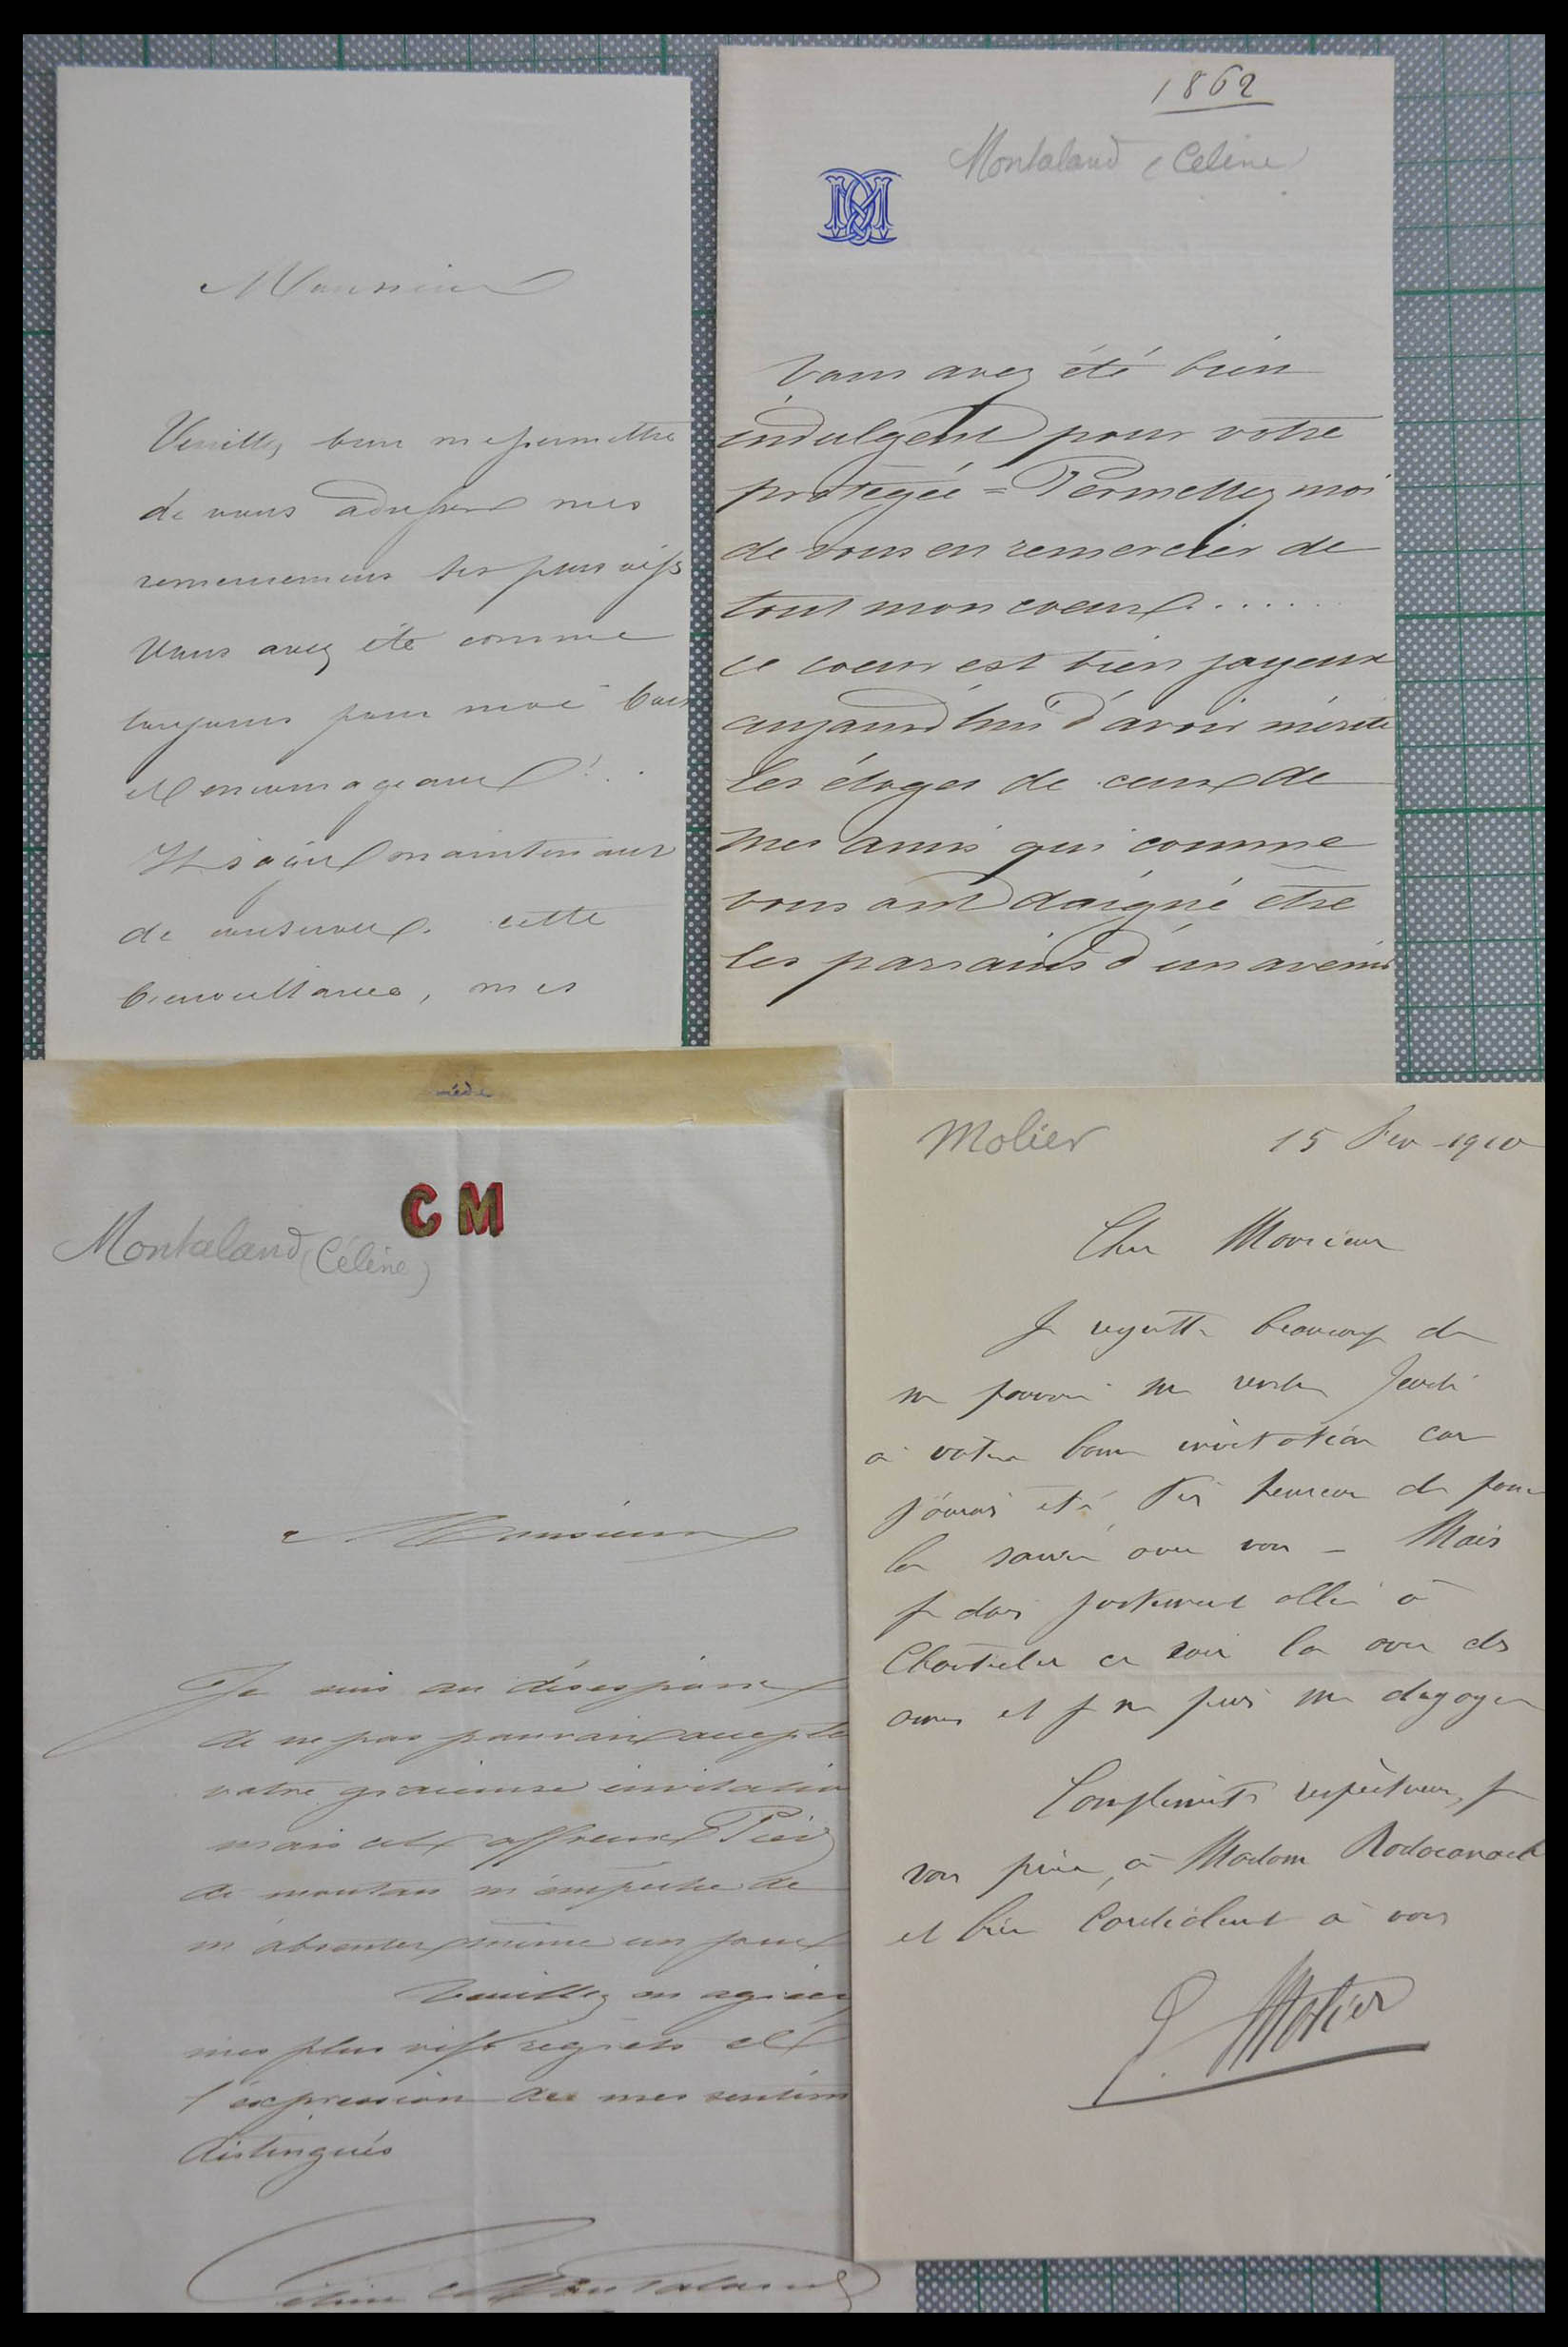 Monsieur
Veuillez bien me permettre
de vous adresser mes
remerciemens les plus vifs
Vous avez été comme
toujours pour moi bon
et encourageant !..
maintenant
de conserver cette
bienveillance, mes
1862
Montaland (Celine)
Vous avez été bien
indulgent pour votre
protégée = Permettez moi
de vous en remercier de
tout mon coeur......
ce coeur est bien joyeux
aujourd'hui d'avoir mérité
les éloges de ceux de
mes amis qui comme
vous ont daigné être
les parrains d'un avenir
CM
Montaland (Céline)
Monsieur
Je suis au désespoir
de ne pas pouvoir accepte
votre gracieuse invitatio
mais cet affreux Pied
de mouton m'empêche de
m'absenter même un jour
Veuillez en agréer
mes plus vifs regrets et
l'expression de mes sentim
distingués
Céline Montaland
Molier
15 Fev 1910
Cher Monsieur
Je regrette beaucoup de
ne pouvoir me rendre Jeudi
à votre bonne invitation car
j'aurais été très heureux de passer
la soirée avec vous – Mais
je dois justement aller à
Chantecler ce soir là avec des
amis et je ne puis me dégager
Compliments respectueux, je
vous prie, à Madame Rodocanachi
et bien Cordialement à vous
E. Molier